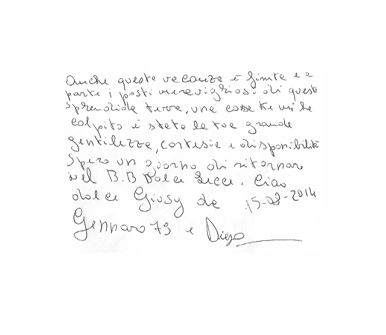 Anche queste vacanze è finite e a
parte i posti meravigliosi di questa
splendida terra, una cosa ti mi ha
colpito è stata la tue grande
gentilezza, cortesia e disponibilità
Spero un giorno di ritornare
nel B.B Dolci Lecce. Ciao
dolce Giusy da 15-08-2014
Gennaro 73 e Diego